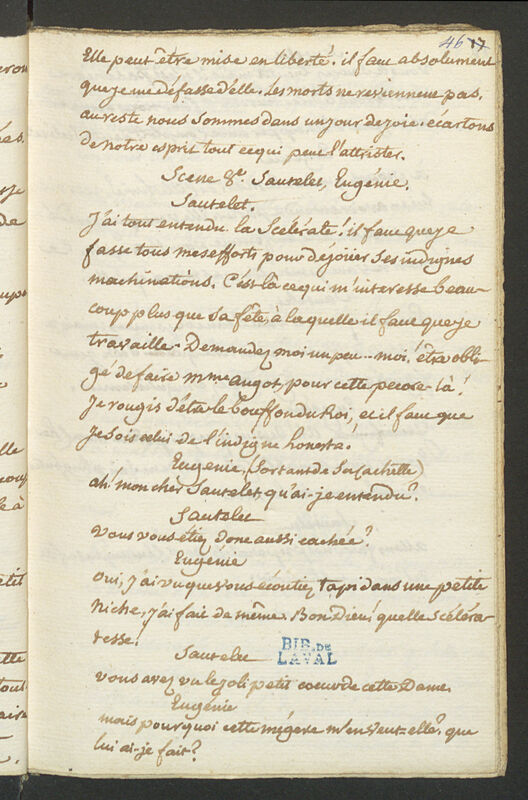 46 17
Elle peut être mise en liberté! il faut absolument
que je me défasse d'elle. Les morts ne reviennent pas.
au reste nous sommes dans un jour de joie. écartons
de notre esprit tout ce qui peut l'attrister.
Scene 8e. Sautelet, Eugénie.
Sautelet.
J'ai tout entendu. la Scélérate! il faut que je
fasse tous mes efforts pour déjouer ses indignes
machinations. C'est là ce qui m'interesse beau-
coup plus que sa fête, à laquelle il faut que je
travaille. Demandez moi un peu.. moi! être obli-
gé de faire mme angot, pour cette pecore-là!
Je rougis d'être le bouffon du Roi, et il faut que
je sois celui de l'indigne honesta!
Eugénie, (sortant de sa cachette)
ah! mon cher Sautelet, qu'ai-je entendu?
Sautelet
vous vous étiez donc aussi cachée?
Eugénie
oui, j'ai vu que vous écoutiez tapi dans une petite
niche, j'ai fait de même. Bon Dieu! quelle scéléra-
tesse!
Sautelet
BIB. DE
LAVAL
vous avez vu le joli petit coeur de cette Dame.
Eugénie
mais pourquoi cette mégere m'en veut-elle? que
lui ai-je fait?